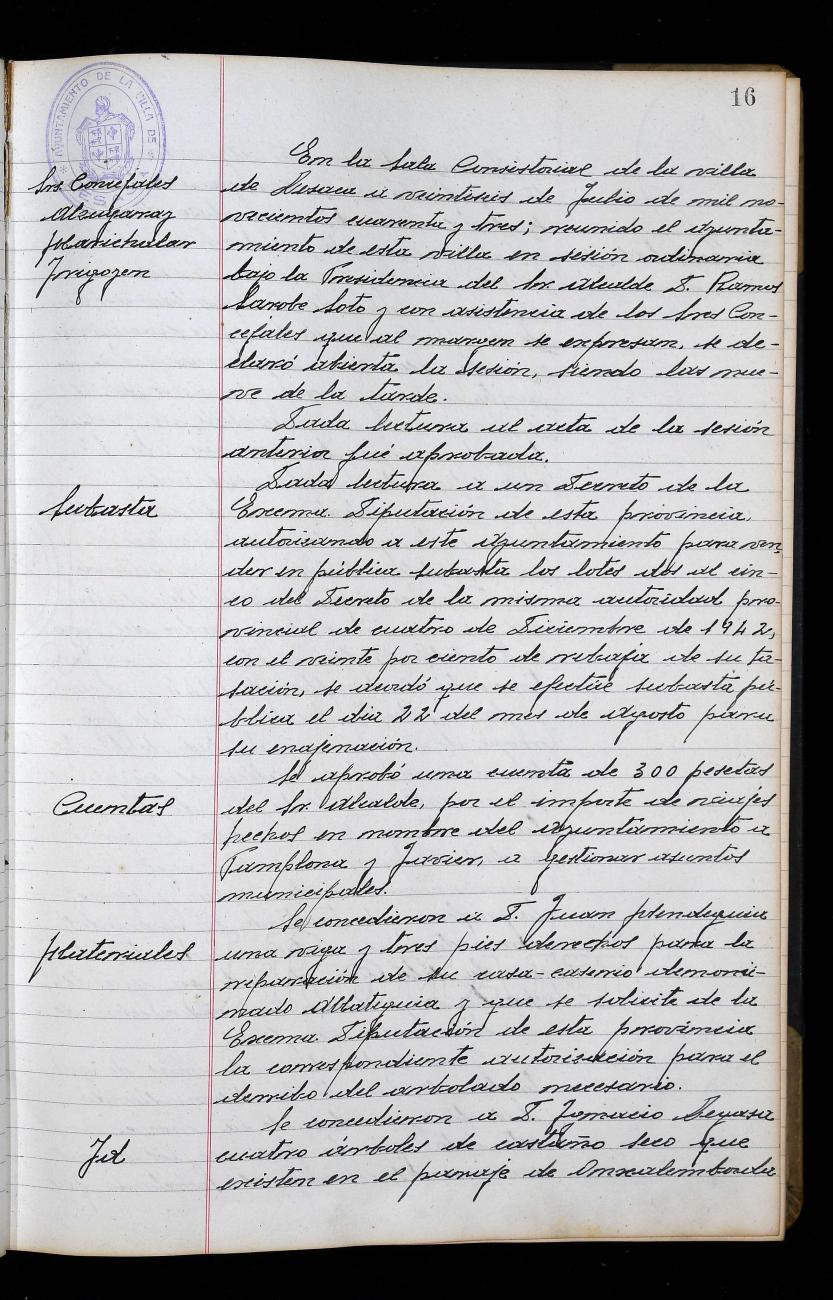 16
AYUNTAMIENTO DE LA VILLA DE
En la Sala Consistorial de la villa
Srs Concejales
de Lesaca a veintiseis de Julio de mil no-
Alzugaray
vecientos cuarenta y tres; reunido el Ayunta-
Marichalar
miento de esta villa en sesión ordinaria
Irigoyen
bajo la Presidencia del Sr. Alcalde D. Ramos
Sarobe Soto y con asistencia de los Sres Con-
cejales que al margen se expresan, se de-
claró abierta la sesión, siendo las nue-
ve de la tarde.
Dada lectura al acta de la sesión
anterior fué aprobada.
Dada lectura a un Decreto de la
Subasta
Excma. Diputación de esta provincia,
autorizando a este Ayuntamiento para ven
der en pública subasta los lotes dos al cin-
co del Decreto de la misma autoridad pro-
vincial de cuatro de Diciembre de 1942,
con el veinte por ciento de rebaja de su ta-
sación, se acordó que se efectúe subasta pú-
blica el dia 22 del mes de Agosto para
su enajenación.
Se aprobó una cuenta de 300 pesetas
Cuentas
del Sr. Alcalde, por el importe de viajes
hechos en nombre del Ayuntamiento a
Pamplona y Javier, a gestionar asuntos
municipales.
Se concedieron a D. Juan Mendeguia
Materiales
una viga y tres pies derechos para la
reparación de su casa-caserio denomi-
nado Allateguia y que se solicite de la
Excma. Diputación de esta provincia
la correspondiente autorización para el
derribo del arbolado necesario.
Se concedieron a D. Ignacio
Id
cuatro árboles de castaño seco que
existen en el paraje de